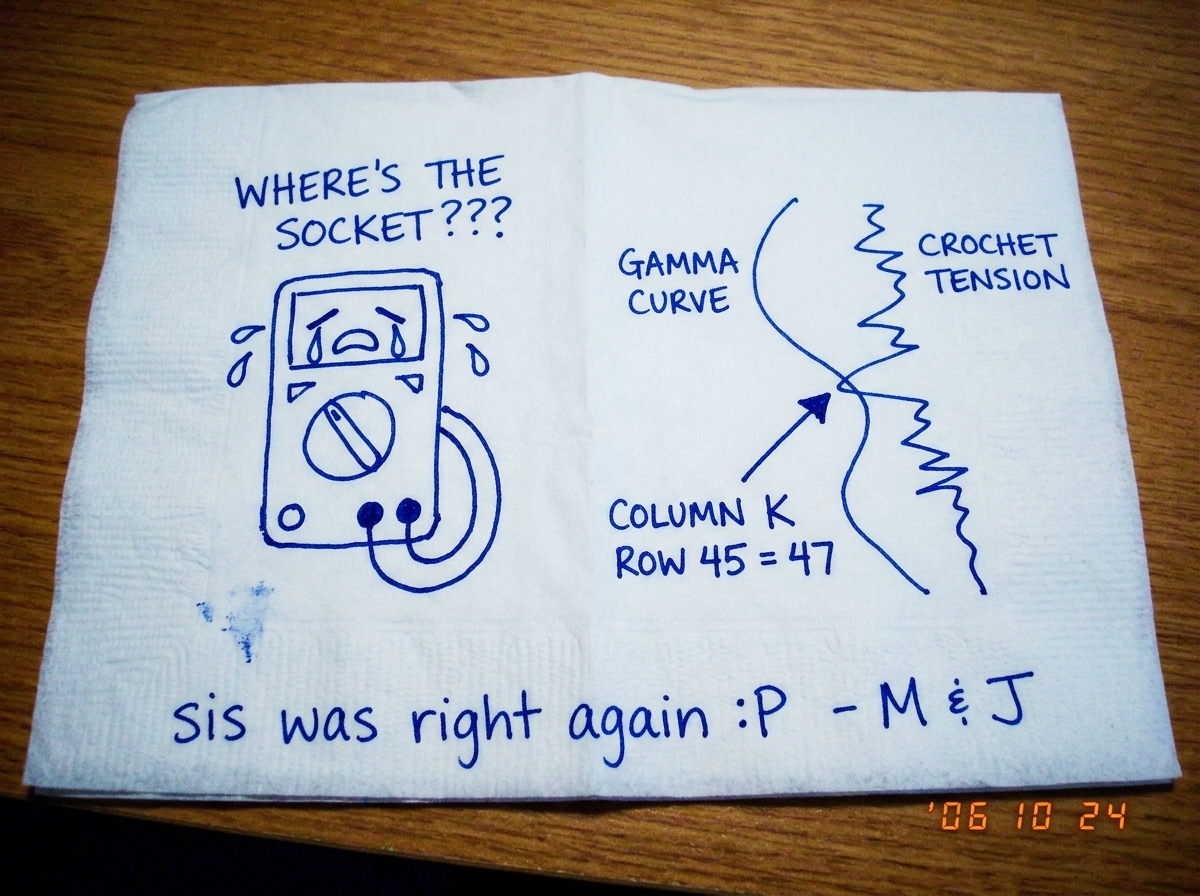 WHERE'S THE
SOCKET???
GAMMA
CURVE
CROCHET
TENSION
COLUMN K
ROW 45 = 47
sis was right again :P – M & J
'06 10 24